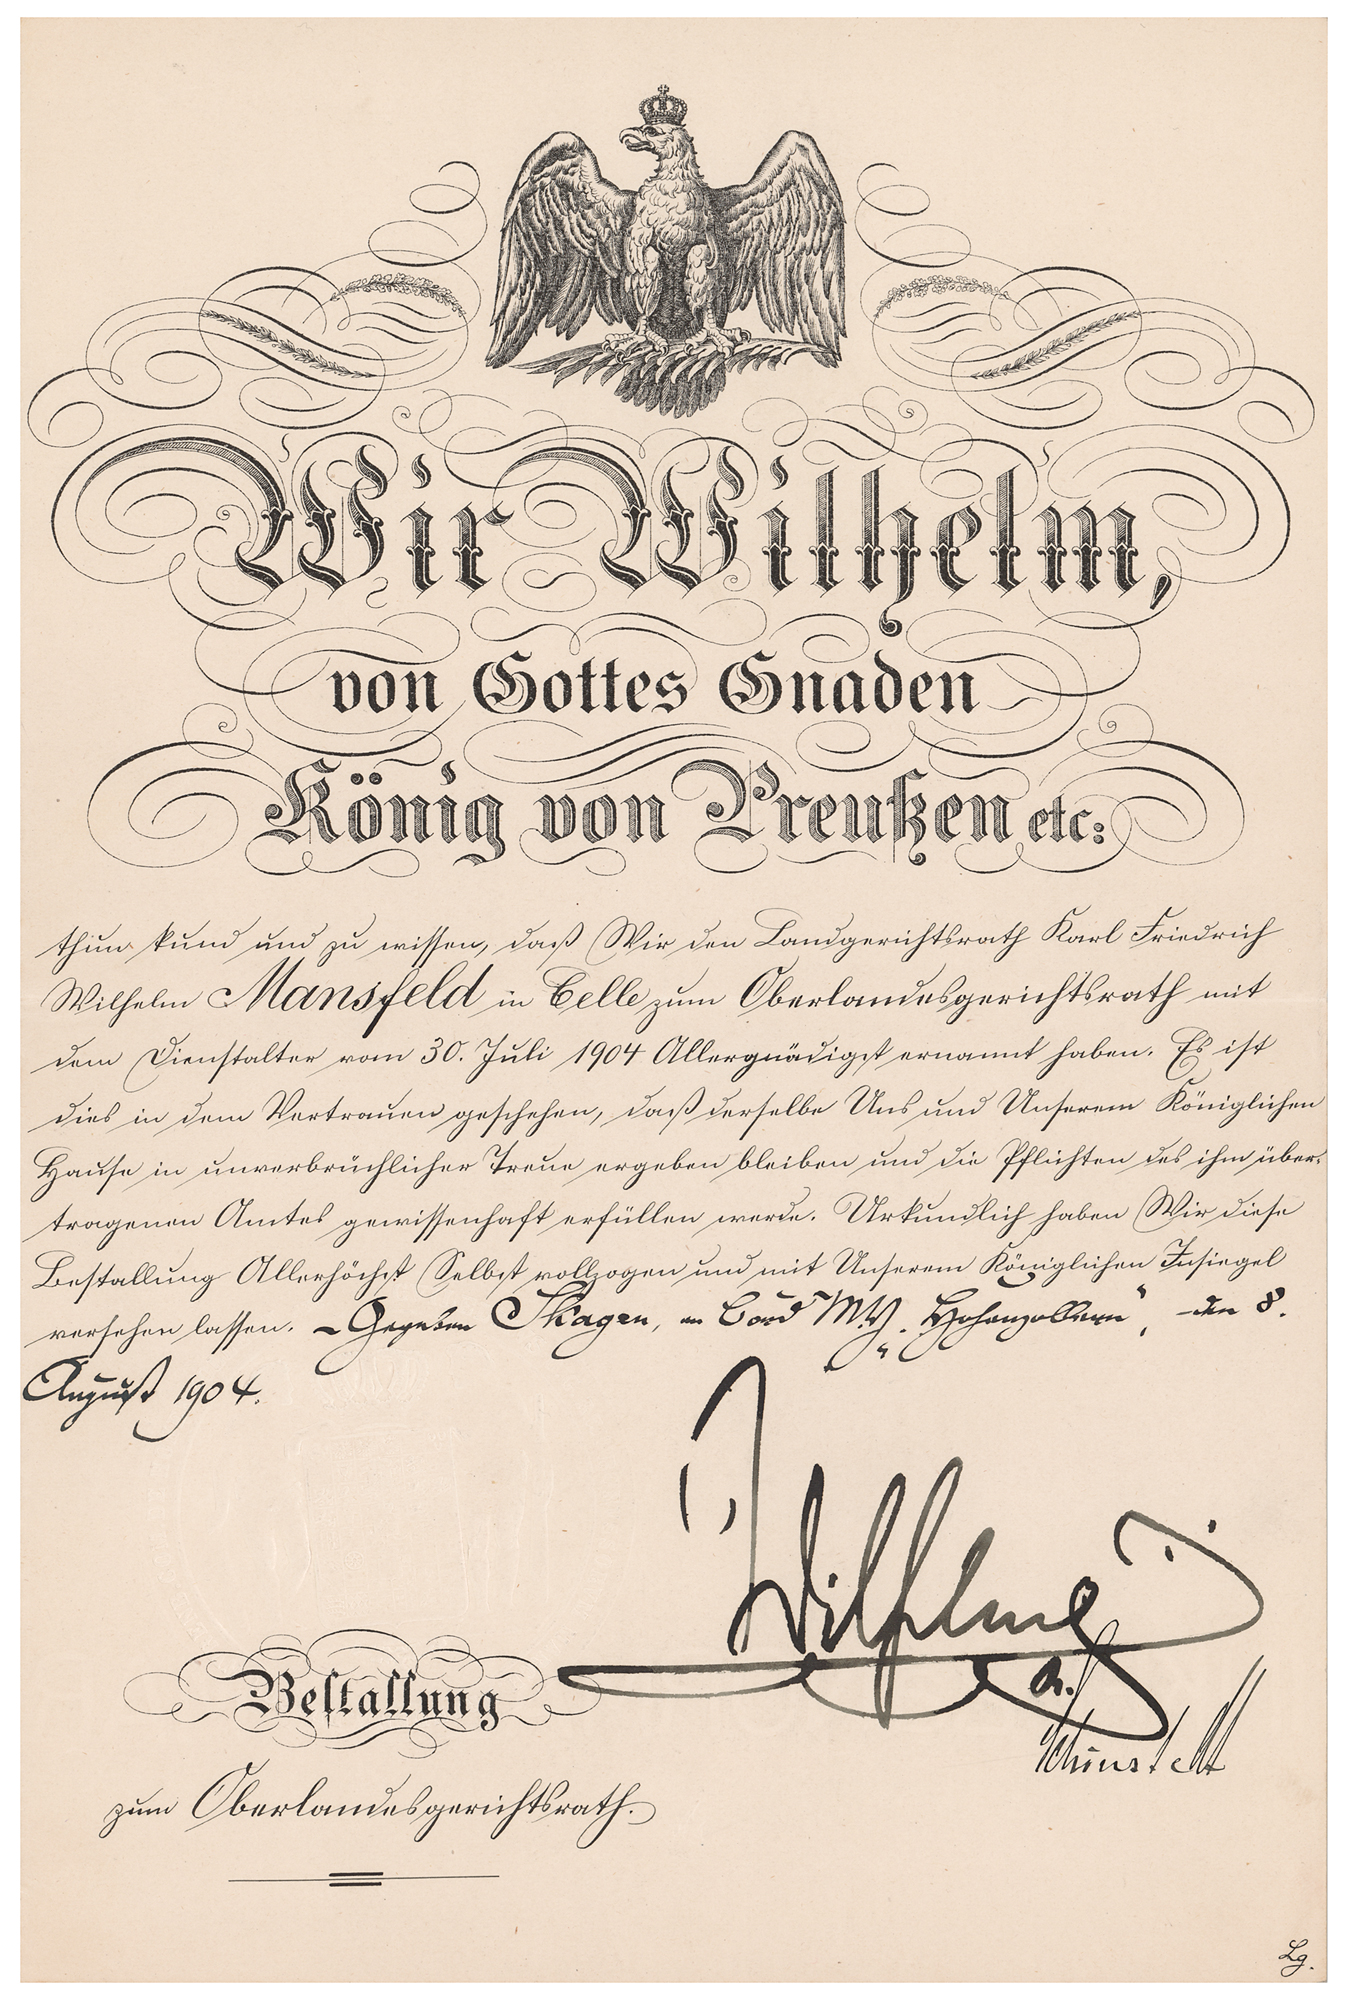 Wir Wilhelm,
von Gottes Gnaden
König von Preußen etc:
thun kund und zu wissen, daß Wir den Landgerichtsrath Karl Friedrich
Wilhelm Mansfeld in Celle zum Oberlandesgerichtsrath mit
dem Dienstalter vom 30. Juli 1904 Allergnädigst ernannt haben. Es ist
dies in dem Vertrauen geschehen, daß derselbe Uns und Unserem Königlichen
Hause in unverbrüchlicher Treue ergeben bleiben und die Pflichten des ihm über-
tragenen Amtes gewissenhaft erfüllen werde. Urkundlich haben Wir diese
Bestallung Allerhöchst Selbst vollzogen und mit Unserem Königlichen Insiegel
versehen lassen. – Gegeben Skagen, an Bord M.Y. „Hohenzollern“, den 8.
August 1904.
Wilhelm
Bestallung
zum Oberlandesgerichtsrath.
Lg.